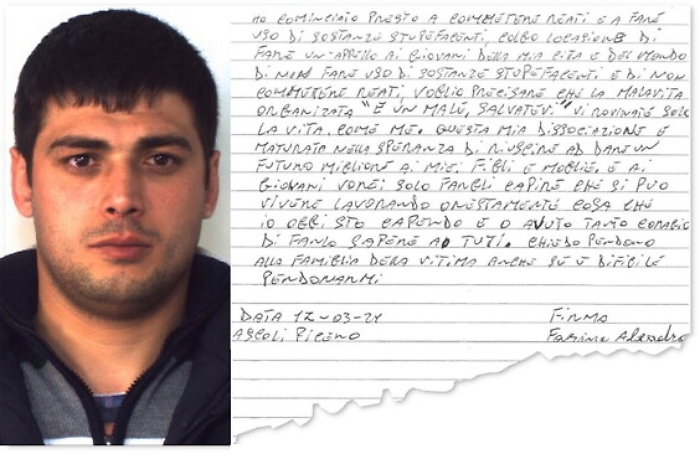 HO COMINCIATO PRESTO A COMMETERE REATI E A FARE
USO DI SOSTANZE STUPEFACENTI, COLGO LOCASIONE DI
FARE UN APPELLO AI GIOVANI DELLA MIA CITA E DEL MONDO
DI NON FARE USO DI SOSTANZE STUPEFACENTI E DI NON
COMMETERE REATI, VOGLIO PRECISARE CHE LA MALAVITA
ORGANIZATA "È UN MALE, SALVATEVI" VI ROVINATE SOLO
LA VITA, COME ME. QUESTA MIA DISSOCIAZIONE E
MATURATA NELLA SPERANZA DI RIUSCIRE AD DARE UN
FUTURO MIGLIORE AI MIEI FIGLI E MOGLIE. E AI
GIOVANI VOREI SOLO FARGLI CAPIRE CHE SI PUO
VIVERE LAVORANDO ONESTAMENTE COSA CHE
IO OGGI STO CAPENDO E O AVUTO TANTO CORAGIO
DI FARLO SAPERE AD TUTI. CHIEDO PERDONO
ALLA FAMIGLIA DELLA VITIMA ANCHE SE È DIFICILE
PERDONARMI
DATA 12-03-21 FIRMA
ASCOLI PICENO Farina